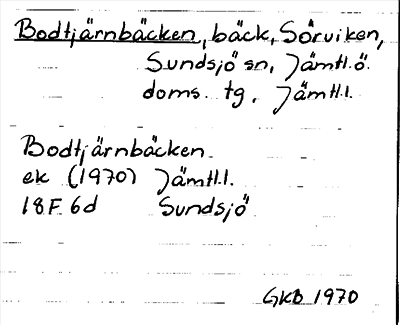 Bodtjärnbäcken, bäck, Sörviken,
Sundsjö sn, Jämtl. ö.
doms. tg, Jämtl.l.
Bodtjärnbäcken
ek (1970) Jämtl.l.
18F 6d Sundsjö
GKB 1970